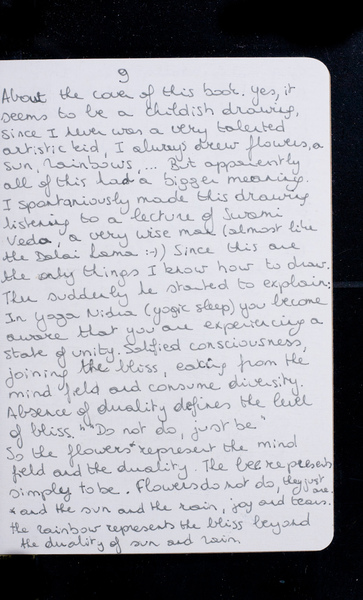 9
About the cover of this book. Yes, it
seems to be a childish drawing,
since I never was a very talented
artistic kid, I always drew flowers, a
sun, rainbows, ... But apparently
all of this had a bigger meaning.
I spontaniously made this drawing
listening to a lecture of Swami
Veda, a very wise man (almost like
the Dalai Lama :-)) Since this are
the only things I know how to draw.
Then suddenly he started to explain:
In yoga Nidra (yogic sleep) you become
aware that you are experiencing a
state of unity. consciousness,
joining the bliss, eating from the
mind field and consume diversity.
Absence of duality defines the level
of bliss." "Do not do, just be."
So the flowers* represent the mind
field and the duality. The bee represents
simply to be. Flowers do not do, they just are.
* and the sun and the rain, joy and tears.
The rainbow represents the bliss beyond
the duality of sun and rain.